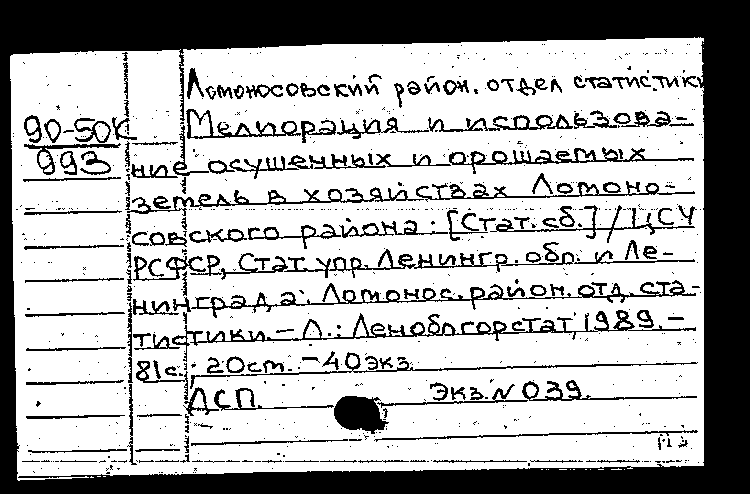 Ломоносовский район. отдел статистики
90-50К Мелиорация и использова-
993 ние осушенных и орошаемых
земель в хозяйствах Ломоно-
совского района: [Стат. сб.] / ЦСУ
РСФСР, Стат. упр. Ленингр. обл. и Ле-
нинграда. Ломонос. район. отд. ста-
тистики. – Л.: Леноблгорстат, 1989. –
81 с.; 20 ст. – 40 экз.
ДСП. Экз. N 039.